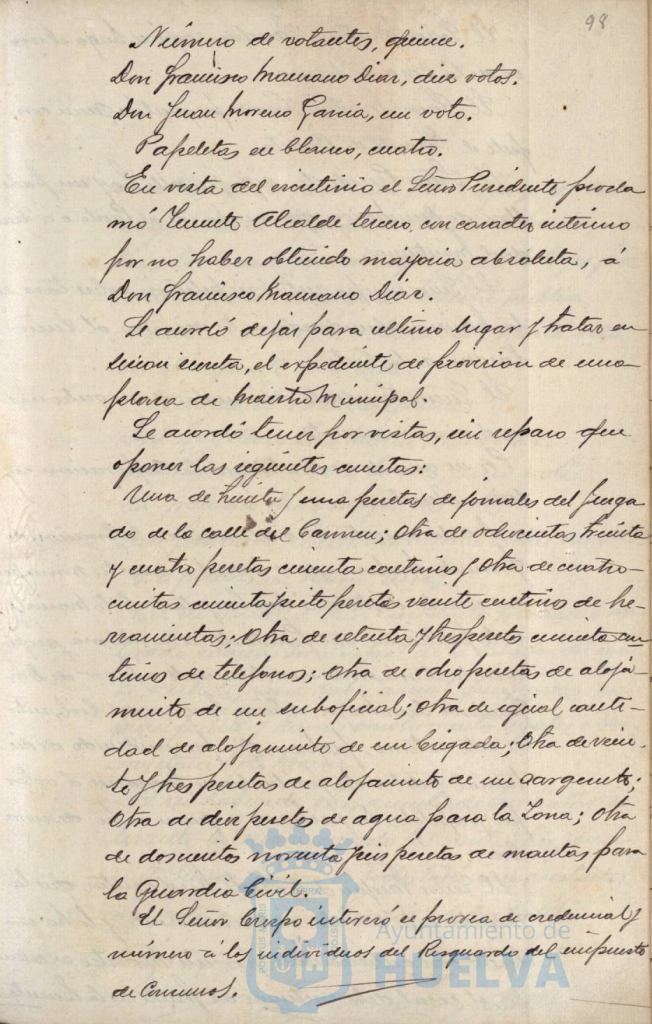 98
Número de votantes, quince.
Don Francisco Mansano Diaz, diez votos.
Don Juan Moreno Garcia, un voto.
Papeletas en blanco, cuatro.
En vista del escrutinio el Señor Presidente procla
mó Teniente Alcalde tercero con caracter interino
por no haber obtenido mayoria absoluta, á
Don Francisco Mansano Diaz.
Se acordó dejar para ultimo lugar y tratar en
sesion secreta, el expediente de provision de una
plaza de Maestro Municipal.
Se acordó tener por vistas, sin reparo que
oponer las siguientes cuentas:
Una de treinta y una pesetas de jornales del Juzga
do de la calle del Carmen; Otra de ochocientas treinta
y cuatro pesetas cincuenta centimos y Otra de cuatro-
cientas cincuenta y siete pesetas veinte centimos de he-
rramientas; Otra de setenta y tres pesetas cincuenta cen
timos de telefonos; Otra de ocho pesetas de aloja-
miento de un suboficial; Otra de igual canti-
dad de alojamiento de un brigada; Otra de vein-
te y tres pesetas de alojamiento de un sargento;
Otra de diez pesetas de agua para la Zona; Otra
de doscientos noventa y seis pesetas de mantas para
la Guardia Civil.
El Señor Crespo interesó se provea de credencial y
número á los individuos del Resguardo del impuesto
de Consumos.
Ayuntamiento de
HUELVA